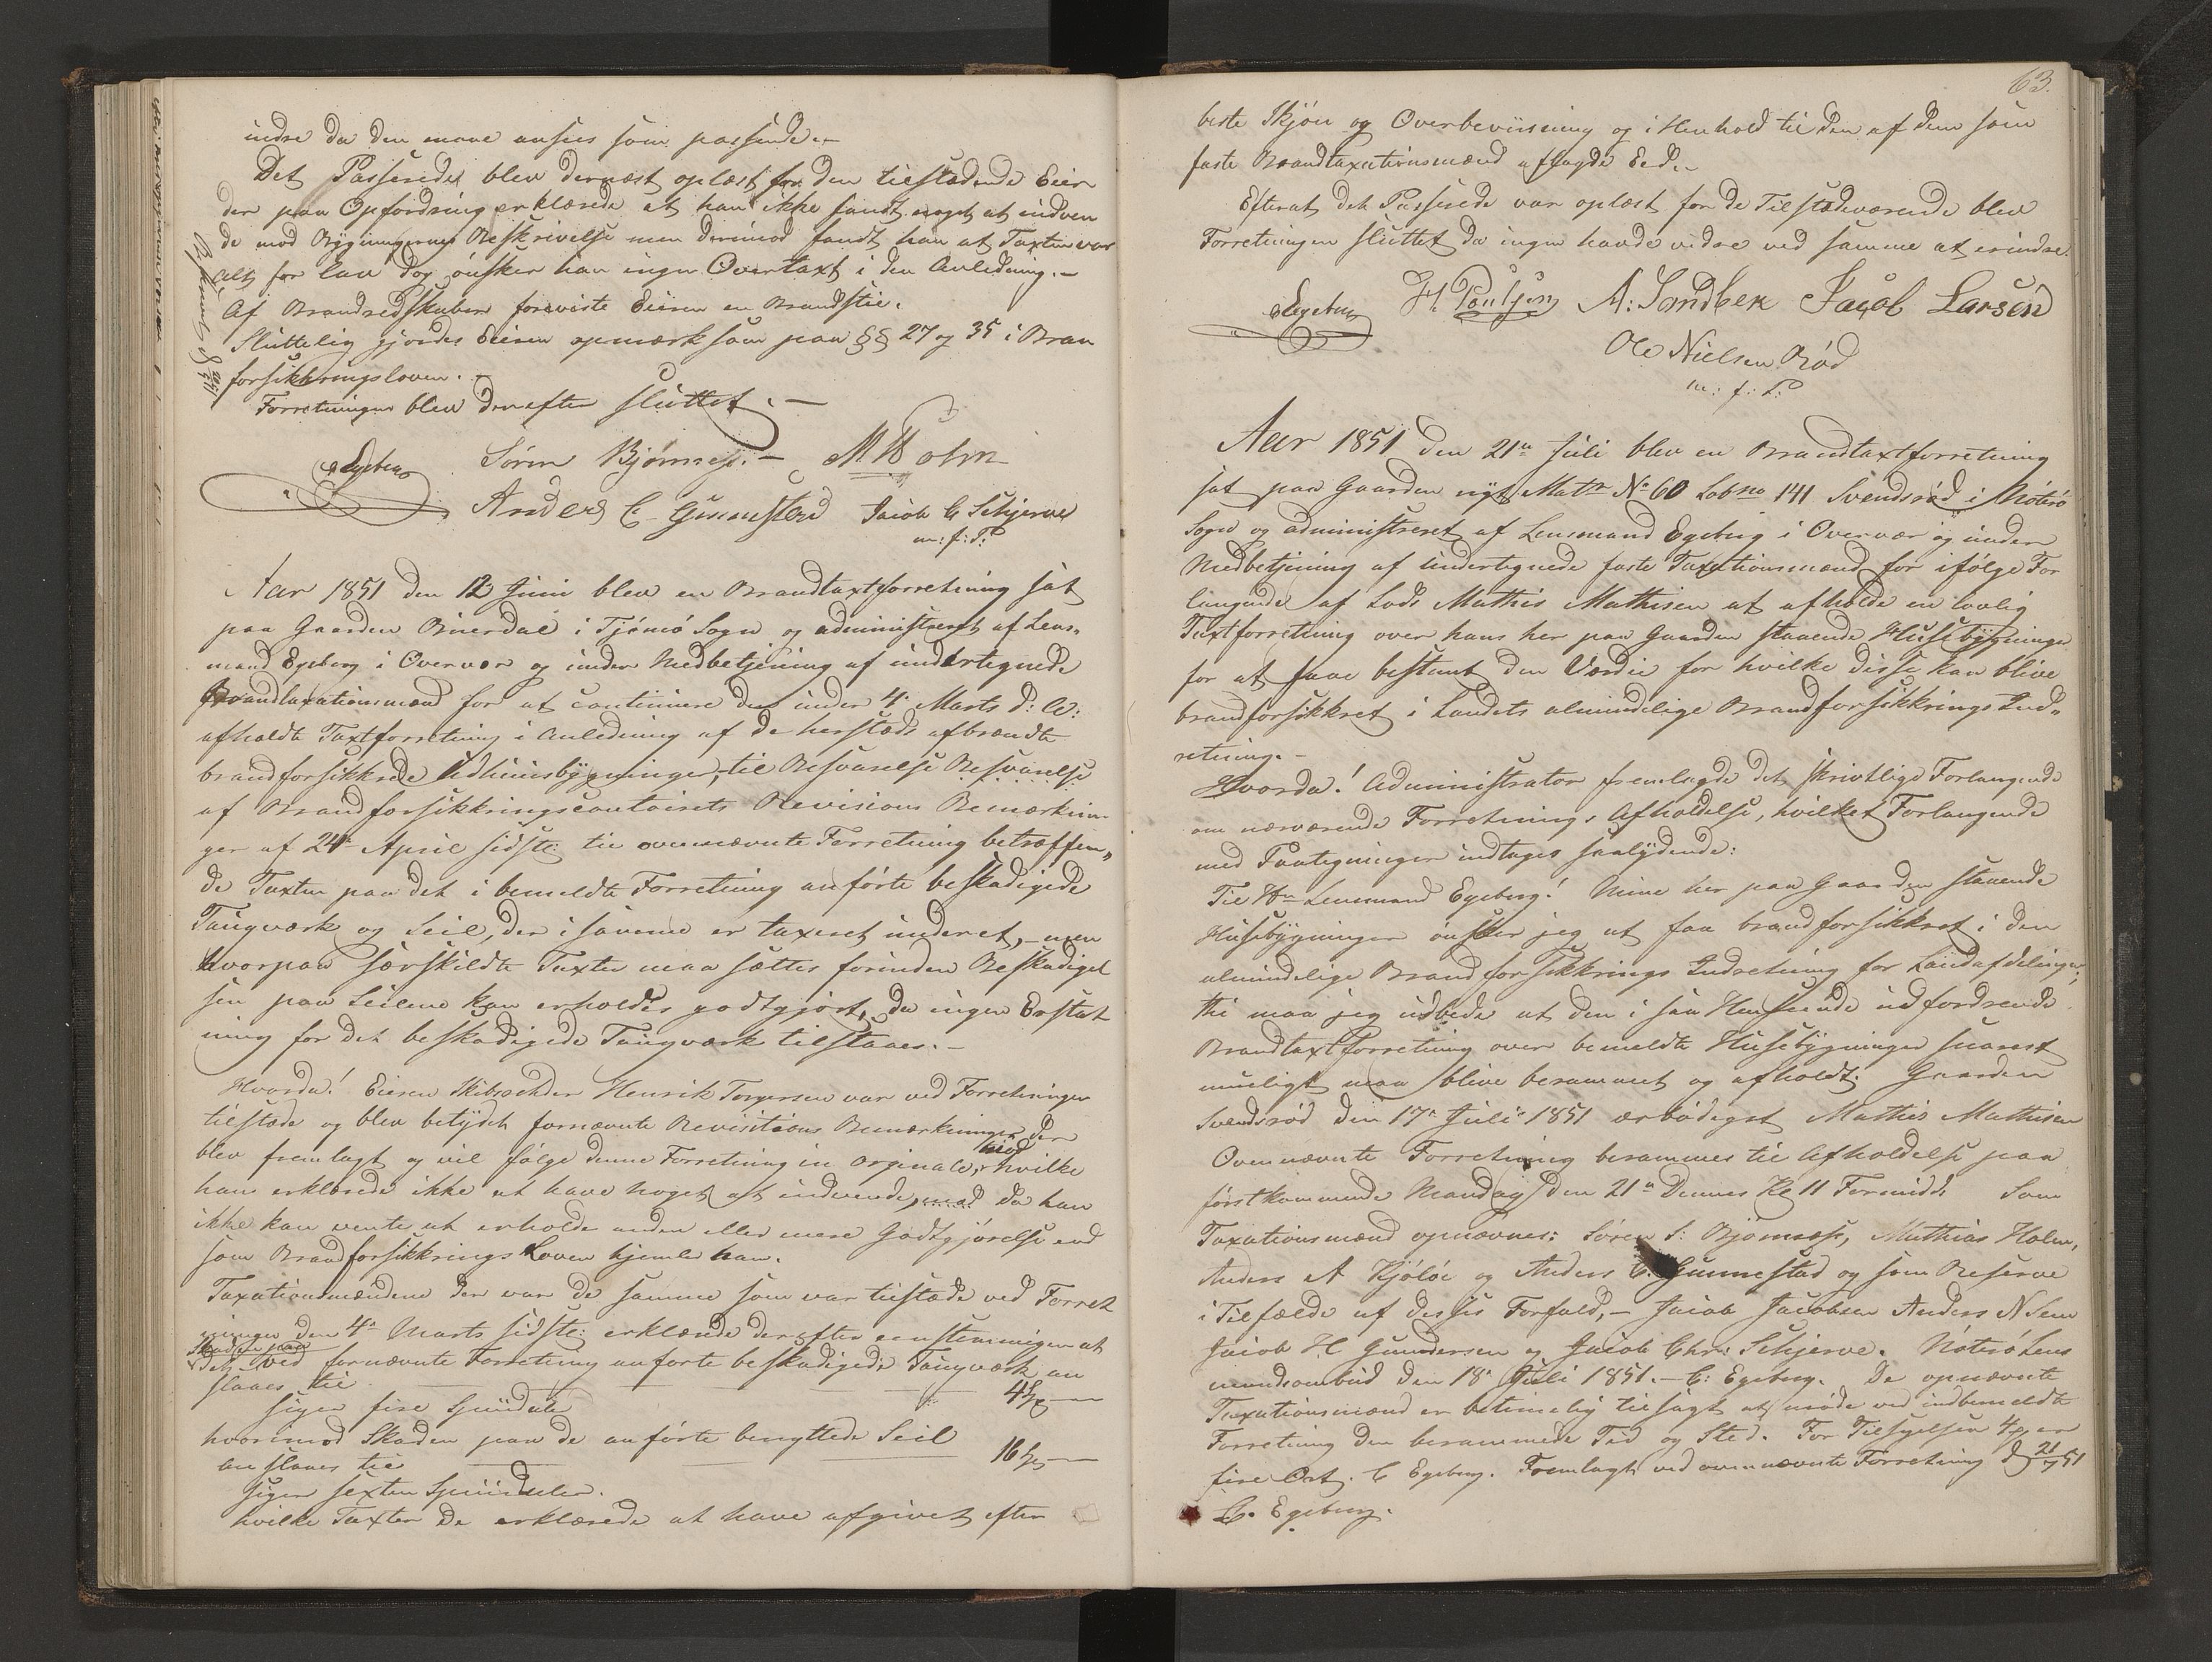 indre da den maae ansees som passende.-
Det Passerede blev dernæst oplæst for den tilstædende Eier
der paa Opfordring erklærede at han ikke fandt noget at indven
de mod Bygningernes Beskrivelse men derimod fandt han at Taxten var
alt for lav dog ønsker han ingen Overtaxt i den Anledning.-
Af Brandredskaber foreviste Eieren en Brandstie.
Sluttelig gjordes Eieren opmærksom paa §§ 27 og 35 i Bran
forsikkringsloven.-
Forretningen blev derefter sluttet.-
Egeberg Søren Bjørnes.- M Holm
Anders C. Gunnestad Jacob C Schjerve
m: f: P:
Aar 1851 den 12 Juni blev en Brandtaxtforretning sat
paa Gaarden Buerdal i Tjømø Sogn og administreret af Lens-
mand Egeberg i Overvær og under Medbetjening af undertegnede
Brandtaxationsmænd for at continuere den under 4. Marts d: A:
afholdte Taxtforretning i Anledning af de herstæds afbrændte
brandforsikkrede Udhuusbygninger, til Besvarelse Besvarelse
af Brandforsikkringscontoirets Revisions Bemærknin-
ger af 24de April sidstl: til ovennævnte Forretning betræffen-
de Taxten paa det i bemeldte Forretning anførte beskadigede
Taugværk og Seil, der i samme er taxeret underet, - men
hvorpaa særskildte Taxter maa sættes forinden Beskadigel
sen paa Seilene kan erholdes godtgjort, da ingen Erstat
ning for det beskadigede Taugværk tilstaaes.-
Hvorda! Eieren Skibsrheder Henrik Torgersen var ved Forretningen
tilstæde og blev betydet fornævnte Revisitions Bemærkninger der
blev fremlagt og vil følge denne Forretning in orginale, mod hvilke
han erklærede ikke at have noget at indvende, mod da han
ikke kan vente at erholde anden eller mere Godtgjørelse end
som Brandforsikkrings Loven hjemler ham.
Taxationsmændene der var de samme som var tilstæde ved Forret
ningen den 4de Marts sidstl: erklærede derefter eenstemmigen at
Skaden paa
det ved fornævnte Forretning anførte beskadigede Taugværk an
slaaes til 4 Spd -
siger fire Spesidaler
hvorimod Skaden paa de anførte benyttede Seil
anslaaes til 16 Spd -
siger sexten Speciedaler.
hvilke Taxter de erklærede at have afgivet efter
63.
beste Skjøn og Overbeviisning og i Henhold til den af dem som
faste Brandtaxationsmænd aflagde Eed.-
Efterat det Passerede var oplæst for de Tilstædeværende blev
Forretningen sluttet da ingen havde videre ved samme at erindre.
Egeberg H. Poulsen A: Sandbek Jacob Larsen
Ole Nielsen Rød
m: f: P:
Aar 1851 den 21de Juli blev en Brandtaxtforretning
sat paa Gaarden nyt Matr No 60 Lobno 141 Svendsrød i Nøterø
Sogn og administreret af Lensmand Egeberg i Overvær og under
Medbetjening af undertegnede faste Taxationsmænd for ifølge For
langende af Lods Mathis Mathisen at afholde en lovlig
Taxtforretning over hans her paa Gaarden staaende Husebygninger
for at faae bestemt den Værdie for hvilke disse kan blive
brandforsikkret i Landets almindelige Brandforsikkrings Ind-
retning.-
Hvorda! Administrator fremlagde det skrivtlige Forlangende
om nærværende Forretnings Afholdelse, hvilket Forlangende
med Paategninger indtages saalydende:
Til Hr Lensmand Egeberg! Mine her paa Gaarden staaende
Husebygninger ønsker jeg at faa brandforsikkret i den
almindelige Brandforsikkrings Indretning for Landafdelingen;
thi maa jeg udbede at den i saa Henseende udfordrende
Brandtaxtforretning over bemeldte Husebygninger snarest
mueligt maa blive berammet og afholdt. Gaarden
Svendsrød den 17de Juli 1851 ærbødigst Mathis Mathisen
Ovennævnte Forretning berammes til Afholdelse paa
førstkommende Mandag den 21de Dennes Kl 11 Formidd: Som
Taxationsmænd opnævnes: Søren S: Bjørnæss, Mathias Holm,
Anders A Kjøløe og Anders C. Gunnestad og som Reserve
i Tilfælde af disses Forfald, - Jacob Jacobsen Anders N Sem
Jacob H Gundersen og Jacob Chr: Schjerve. Nøterø Lens
mandsombud den 18de Juli 1851. - C: Egeberg. De opnævnte
Taxationsmænd er betimelig tilsagt at møde ved indbemeldte
Forretning den berammede Tid og Sted. For Tilsigelsen 4 er
fire Ort. C Egeberg. Fremlagt ved ovennævnte Forretning d 21/7 51
C. Egeberg.